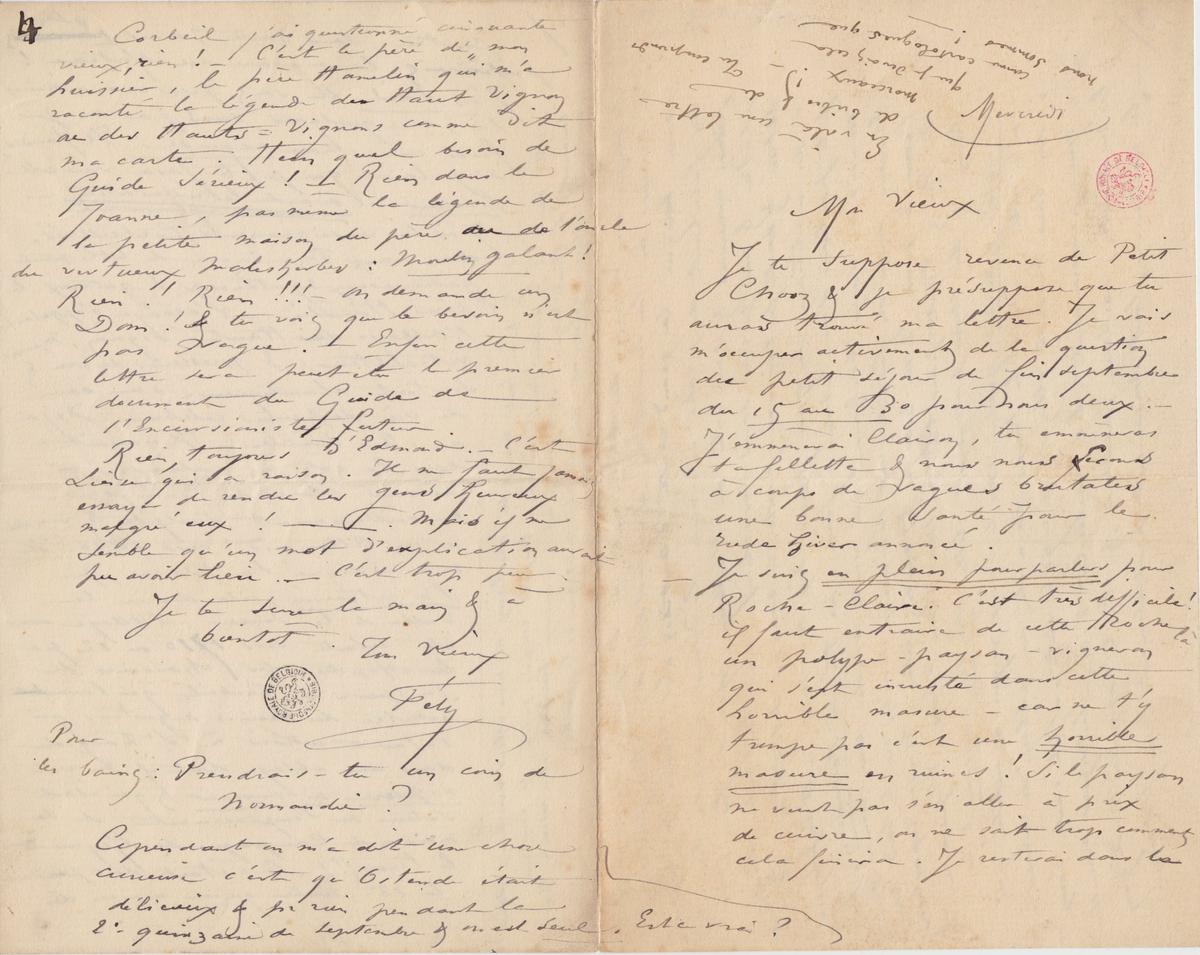 4
Corbeil j'ai questionné cinquante
vieux, rien ! — C'est le père de mon
huissier, le père Hamelin qui m'a
raconté la légende des Haut Vignons
ou des Hauts = Vignons comme dit
ma carte. Hein quel besoin de
Guide Sérieux ! — Rien dans le
Joanne, pas même la légende de
la petite maison du père ou de l'oncle
du vertueux Malesherbes : Moulin galant !
Rien !! Rien !!! — on demande un
Dom ! & tu vois que le besoin n'est
pas vague. — Enfin cette
lettre sera peut être le premier
document du Guide de
l'Excursioniste futur.
Rien, toujours d'Edmond. — C'est
Liesse qui a raison. Il ne faut jamais
essayer de rendre les gens heureux
malgré eux ! — . Mais il me
semble qu'un mot d'explication aurait
pu avoir lieu. — C'est trop peu.
Je te serre la main & à
bientôt. Ton Vieux
Fély
Pour
les bains : Prendrais-tu un coin de
Normandie ?
Cependant on m'a dit une chose
curieuse c'est qu'Ostende était
délicieux & pr rien pendant la
2e quinzaine de septembre & on est seul. Est-ce vrai ?
BIBLIOTHÈQUE ROYALE DE BELGIQUE
Mercredi
En voilà une lettre
de bribes & de
morceaux ! — Tu comprends
que j'envoie cela
comme cartologues que
nous sommes !
BIBLIOTHÈQUE ROYALE DE BELGIQUE
Mon Vieux
Je te suppose revenu de Petit
Chooz & je présuppose que tu
auras trouvé ma lettre. Je vais
m'occuper activement de la question
du petit séjour de fin septembre
du 15 au 30 pour nous deux. —
J'emmènerai Clairon, tu emmèneras
ta fillette & nous nous ferons
à coups de vagues brutales
une bonne santé pour le
rude hiver annoncé.
— Je suis en plein pourparlers pour
Roche-Claire. C'est très difficile !
il faut extraire de cette Roche là
un polype-paysan-vigneron
qui s'est incrusté dans cette
horrible masure — car ne t'y
trompe pas c'est une horrible
masure en ruines ! Si le paysan
ne veut pas s'en aller à prix
de cuivre, on ne sait trop comment
cela finira. Je resterai dans la